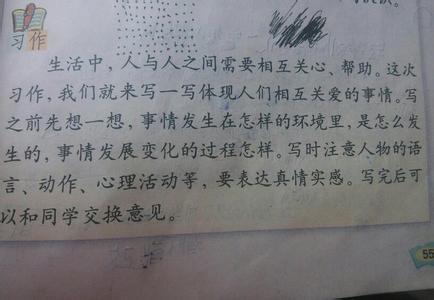 习作
生活中，人与人之间需要相互关心、帮助。这次
习作，我们就来写一写体现人们相互关爱的事情。写
之前先想一想，事情发生在怎样的环境里，是怎么发
生的，事情发展变化的过程怎样。写时注意人物的语
言、动作、心理活动等，要表达真情实感。写完后可
以和同学交换意见。
55